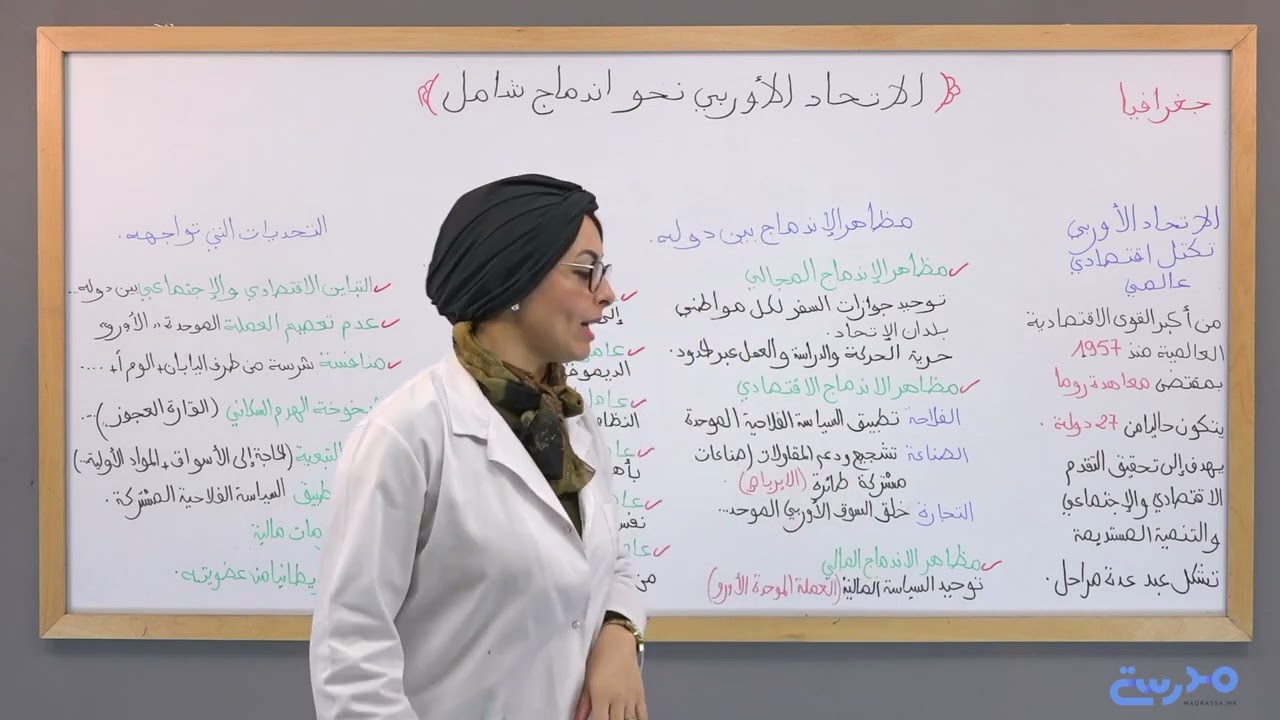 جغرافيا
﴿ الاتحاد الأوربي نحو اندماج شامل ﴾
الاتحاد الأوربي
تكتل اقتصادي
عالمي
من أكبر القوى الاقتصادية
العالمية منذ 1957
بمقتضى معاهدة روما
يتكون حاليا من 27 دولة.
يهدف إلى تحقيق التقدم
الاقتصادي والاجتماعي
والتنمية المستديمة
تشكل عبد عدة مراحل.
مظاهر الإندماج بين دوله.
✓ مظاهر الإندماج المجالي
توحيد جوازات السفر لكل مواطني
بلدان الإتحاد.
حرية الحركة والدراسة والعمل عبر الحدود.
✓ مظاهر الاندماج الاقتصادي
الفلاحة تطبيق السياسة الفلاحية الموحدة
الصناعة تشجيع ودعم المقاولات/صناعات
مشتركة طائرة (الايرباص).
التجارة خلق السوق الأوربي الموحد...
✓ مظاهر الاندماج المالي
توحيد السياسة المالية (العملة الموحدة الأورو)
✓
إلى
✓ عامل
✓
النظا
✓
✓
نفس
✓
من
التحديات التي تواجهه.
✓ التباين الاقتصادي والإجتماعي بين دوله...
✓ عدم تعميم العملة الموحدة "الأورو"
✓ منافسة شرسة من طرف اليابان + الوم أ + ....
شيخوخة الهرم السكاني (القارة العجوز)...
التبعية (الحاجة إلى الأسواق + المواد الأولية..)
السياسة الفلاحية المشتركة.
مالية
من عضويته.
مدرسة
MADRASSA.MA